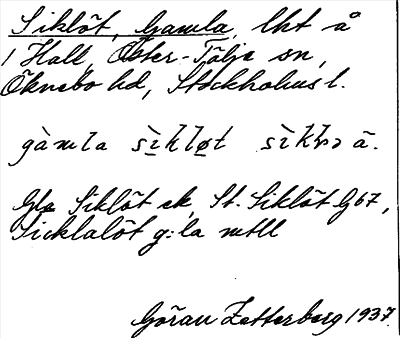 Siklöt, Gamla, lht å
/ Hall, Öster-Tälje sn,
Öknebo hd, Stockholms l.
gàmla sìkløt
Gla Siklöt ek, St. Siklöt G67,
Sicklalöt g:la mtll
Göran Zetterberg 1937.